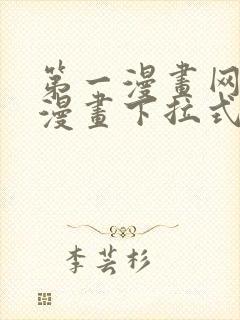 第一漫畫网
漫畫下拉式
李芸杉